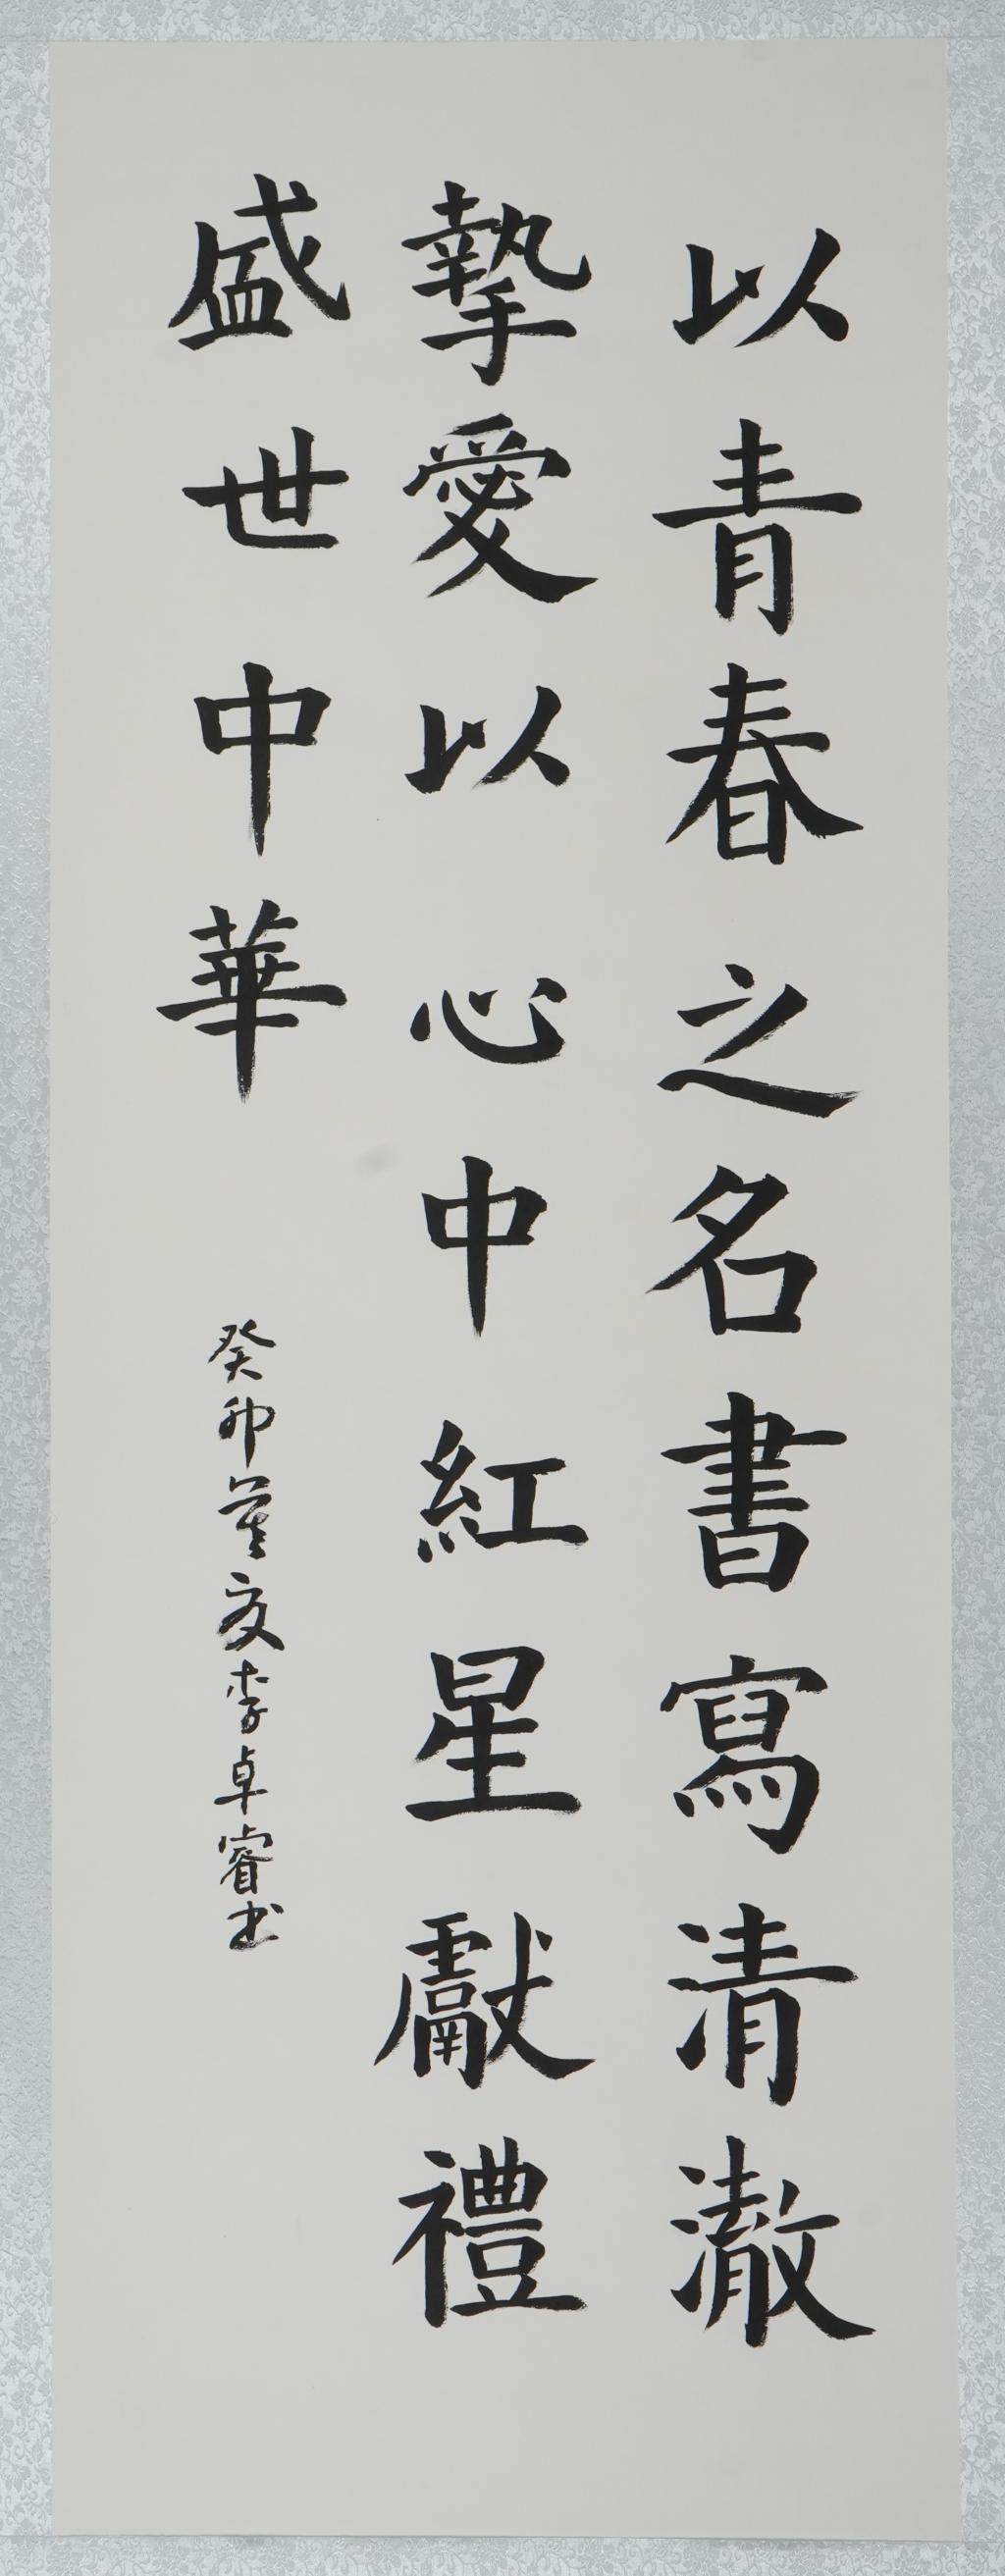 以青春之名書寫清澈
摯愛以心中紅星獻禮
盛世中華
癸卯夏李卓睿书